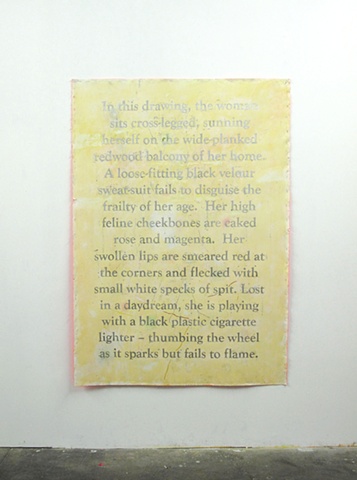 In this drawing, the woman
sits cross-legged, sunning
herself on the wide-planked
redwood balcony of her home.
A loose-fitting black velour
sweat-suit fails to disguise the
frailty of her age. Her high
feline cheekbones are caked
rose and magenta. Her
swollen lips are smeared red at
the corners and flecked with
small white specks of spit. Lost
in a daydream, she is playing
with a black plastic cigarette
lighter – thumbing the wheel
as it sparks but fails to flame.